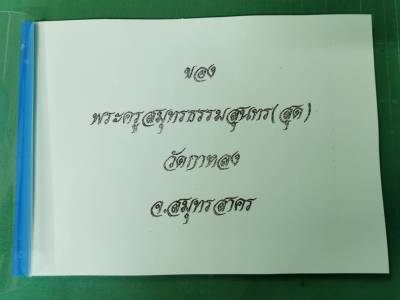 ของ
พระครูสมุทรธรรมสุนทร(สุด)
วัดกาหลง
จ.สมุทรสาคร